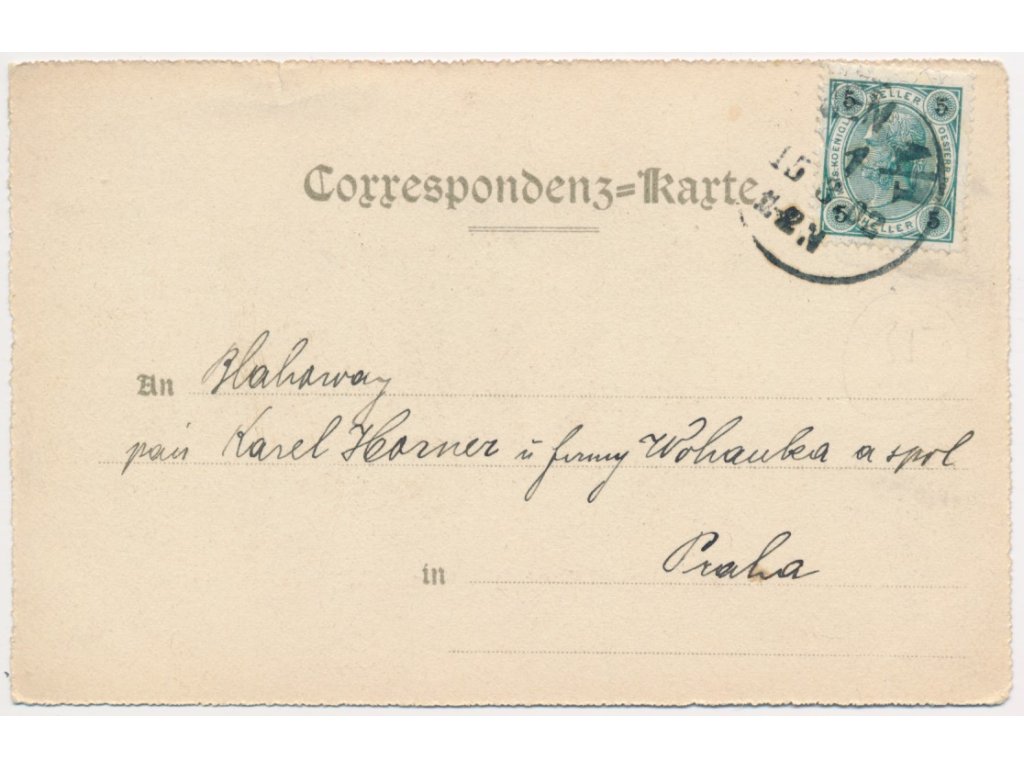 Correspondenz=Karte
5 HELLER 5
5 HELLER 5
15 02
An Blahoway
pan Karel Horner u firmy Wohanka a spol
in Praha